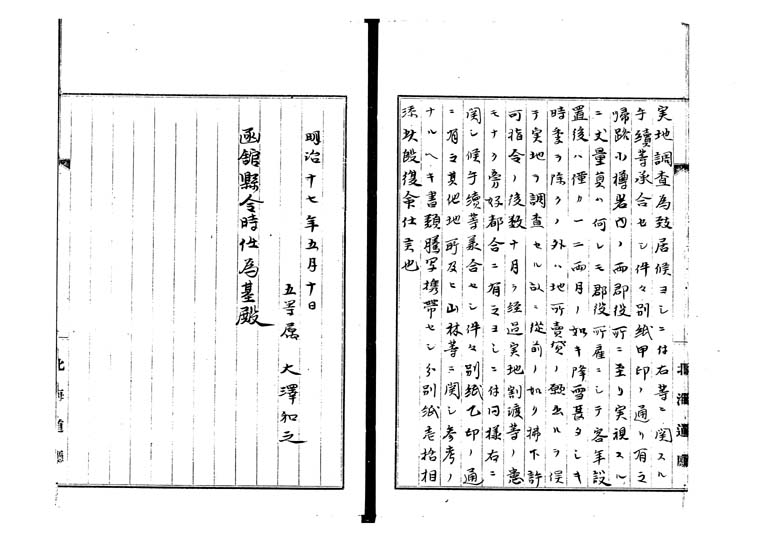 実地調査為致居候ヨシニ付右等ニ関スル
手続等承合セシ件々別紙甲印ノ通リ有之
帰路小樽岩内ノ両郡役所ニ至リ実視スル
ニ丈量員ハ何レモ郡役所雇ニシテ客年設
置後ハ僅カ一二両月ノ如キ降雪甚タシキ
時季ヲ除クノ外ハ地所売貸ノ願出ルヲ俟
テ実地ヲ調査セル故ニ従前ノ如ク払下許
可指令ノ後数十月ヲ経過実地割渡等ノ患
モナク旁好都合ニ有之ヨシニ付同様右ニ
関シ候手続等承合セシ件々別紙乙印ノ通
ニ有之其他地所及ヒ山林等ニ関シ参考ノ
ナルヘキ書類謄写携帯セシ分別紙壱括相
添此段復命仕候也
明治十七年五月十日
五等属 大澤和之
函館縣令時任為基殿
北海道廳